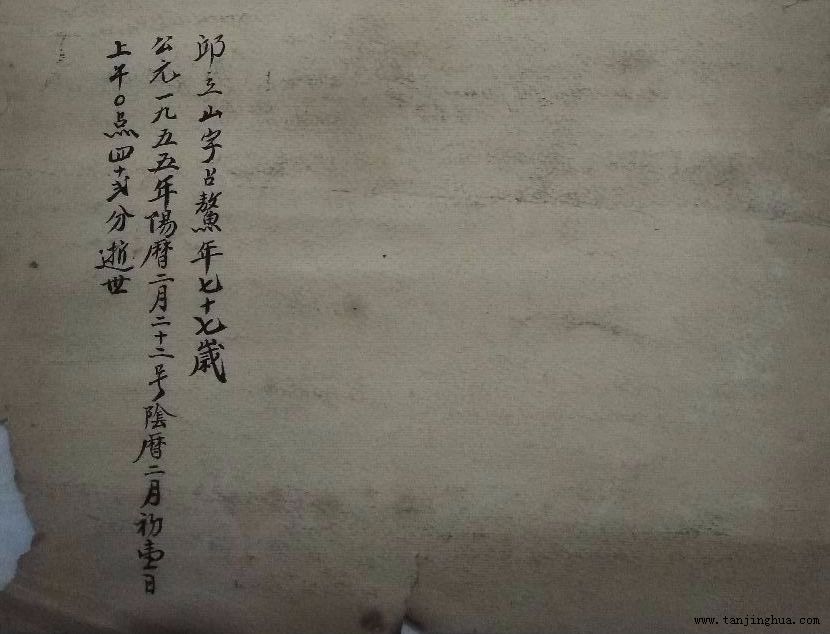 邱立山字占鰲年七十七歲
公元一九五五年陽曆二月二十二号陰曆二月初壹日
上午0点四十弍分逝世
www.tanjinghua.com